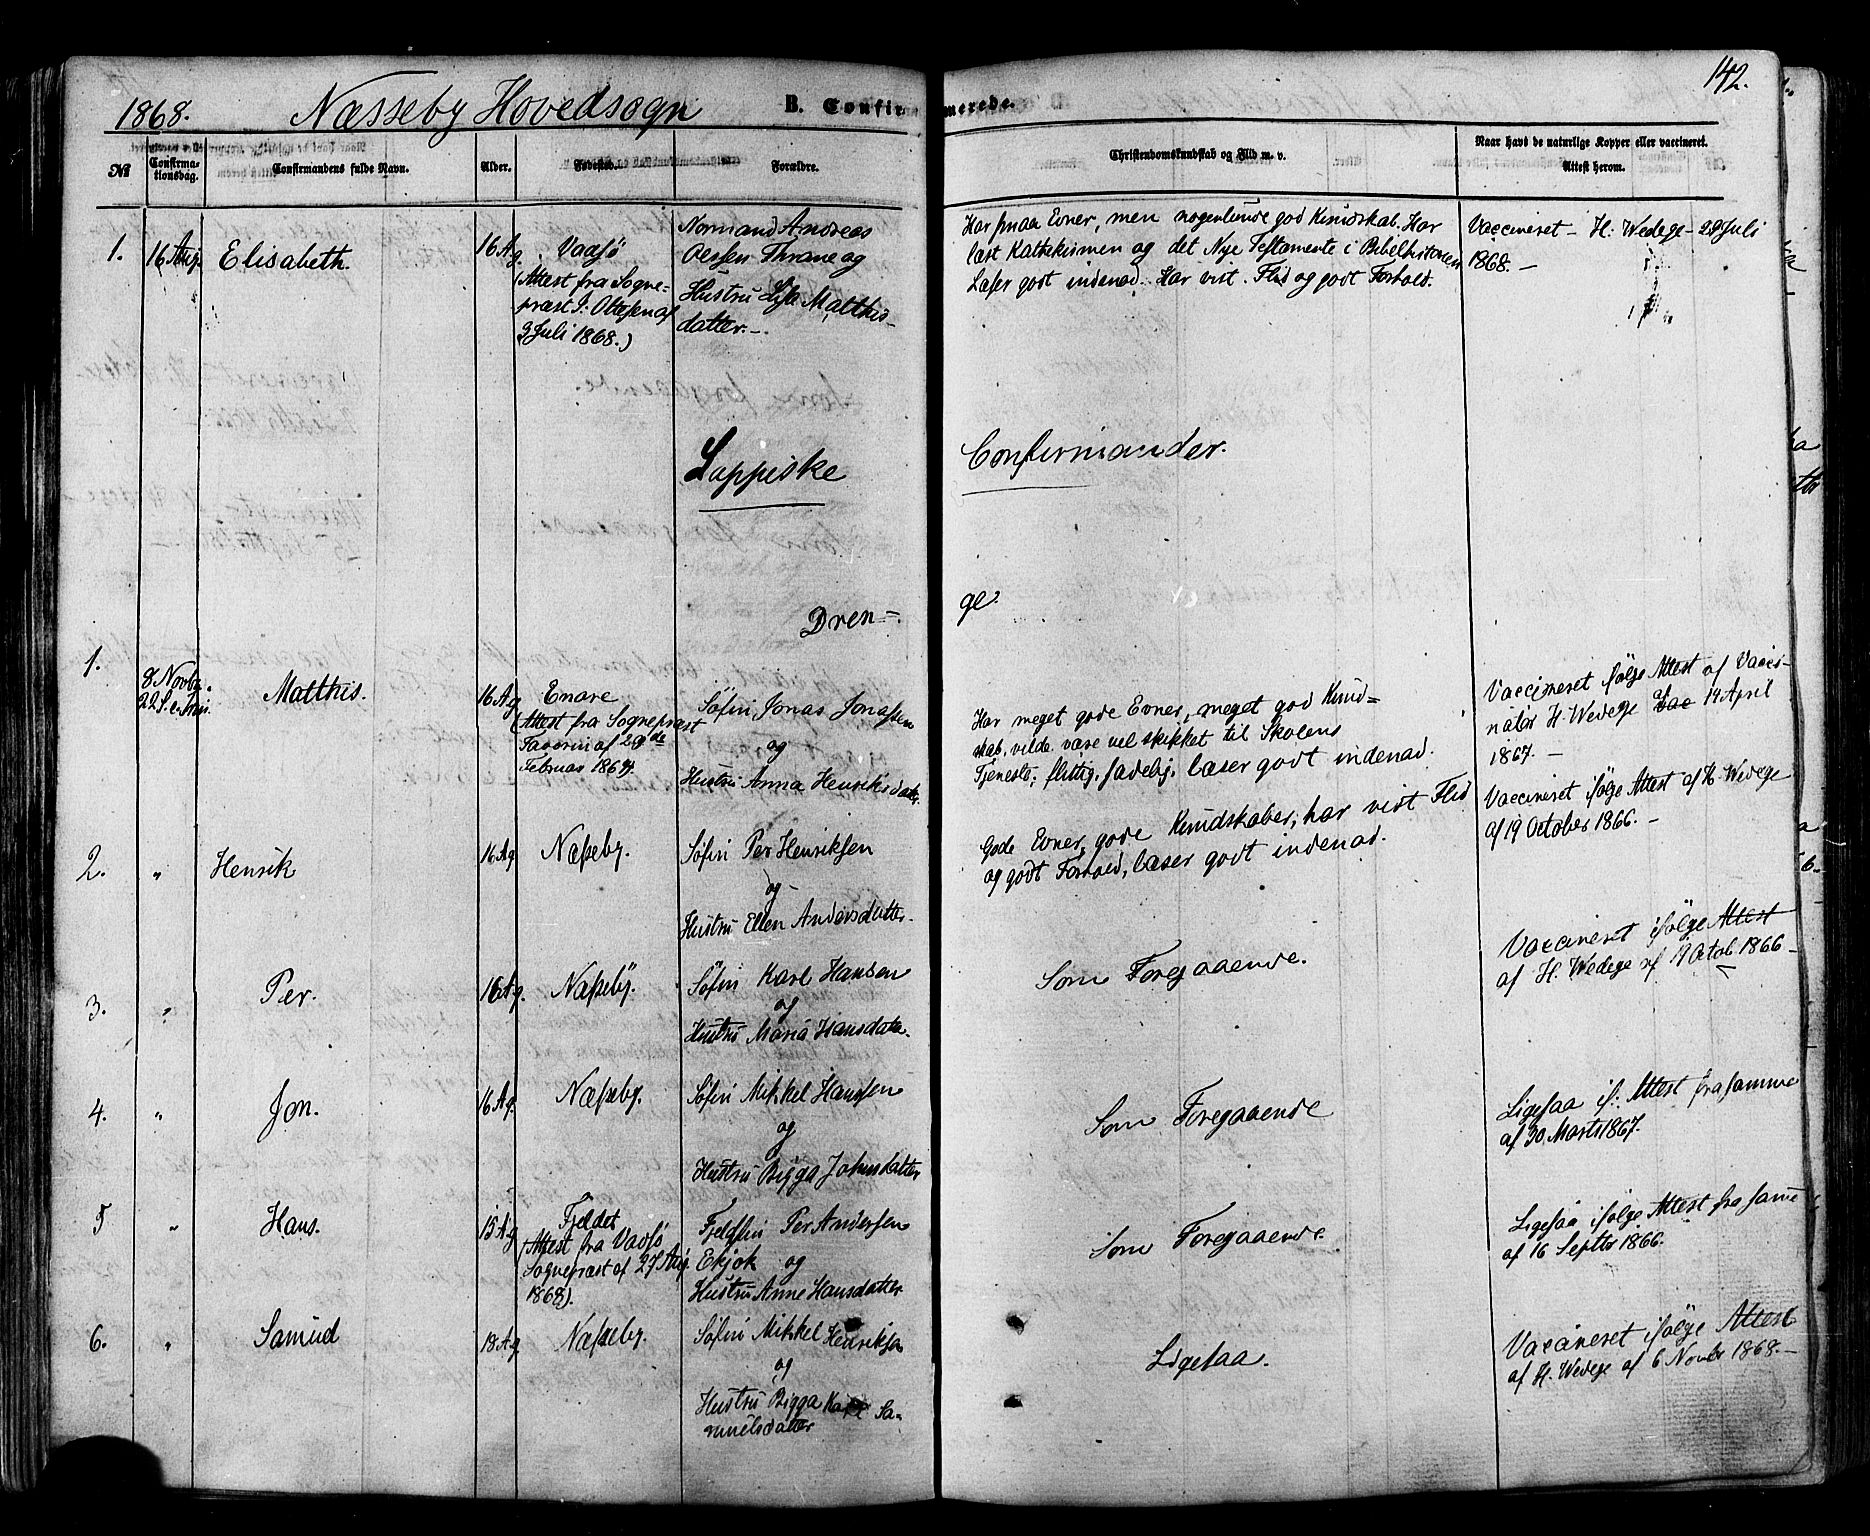 142.
1868. Næsseby Hovedsogn B. Confirmerede.
No
Confirma-
tionsdag.
Confirmandens fulde Navn.
Alder.
Fødested.
Forældre.
Christendomskundskab og Flid m. v.
Naar havd de naturlige Kopper eller vaccineret.
Attest herom.
1. 16 Aug. Elisabeth.
16 Ag
Vadsø
(Attest fra Sogne-
præst P. Ottesen af
9 Juli 1868.)
Normand Andreas
Olssen Thrane og
Hustru Lisa Matthis-
datter.-
Har smaa Evner, men nogenlunde god Kundskab. Har
læst Kathekismen og det Nye Testamente i Bibelhistorien
Læser godt indenad. Har vist Flid og godt Forhold.
Vaccineret - H. Wedege - 28 Juli
1868. -
Lappiske Confirmander.
Dren= ge.
1. 8 Novbr.
22 S. e. Trin.
Matthis.
16 Ag
Enare
(Attest fra Sognepræst
Favorin af 29de
Februar 1864.
Søfin Jonas Jonassen
og
Hustru Anna Henriksdatter.
Har meget gode Evner, meget god Kund=
skab, vilde være vel skikket til Skolens
Tjeneste, flittig, sædelig, læser godt indenad.
Vaccineret ifølge Attest af Vacci-
natør H. Wedege af 14 April
1867. -
2. " Henrik
16 Ag
Næsseby.
Søfin Per Henriksen
og
Hustru Ellen Andersdatter.
Gode Evner, gode Kundskaber, har vist Flid
og godt Forhold, læser godt indenad.
Vaccineret ifølge Attest af H. Wedege
af 19 October 1866. -
3. " Per.
16 Ag.
Næsseby.
Søfin Karl Hansen
og
Hustru Maria Hansdatter.
Som Foregaaende.
Vaccineret ifølge Attest
af H. Wedege af 19 Octob. 1866 -
4. " Jon.
16 Ag.
Næsseby.
Søfin Mikkel Hanssen
og
Hustru Bigga Johnsdatter
Som Foregaaende
Ligesaa if: Attest fra samme
af 30 Marts 1867.
5 " Hans.
15 Ag
Fjeldet
(Attest fra Vadsø
Sognepræst af 27 Aug.
1868).
Fjeldfin Per Andersen
Ekjok og
Hustru Anne Hansdatter
Som Foregaaende.
Ligesaa ifølge Attest fra samme
af 16 Septbr 1866.
6. " Samuel
18 Ag
Næsseby.
Søfin Mikkel Henriksen
og
Hustru Bigga Sa-
muelsdatter
Ligesaa.
Vaccineret ifølge Attest
af H. Wedege af 6 Novbr 1868. -